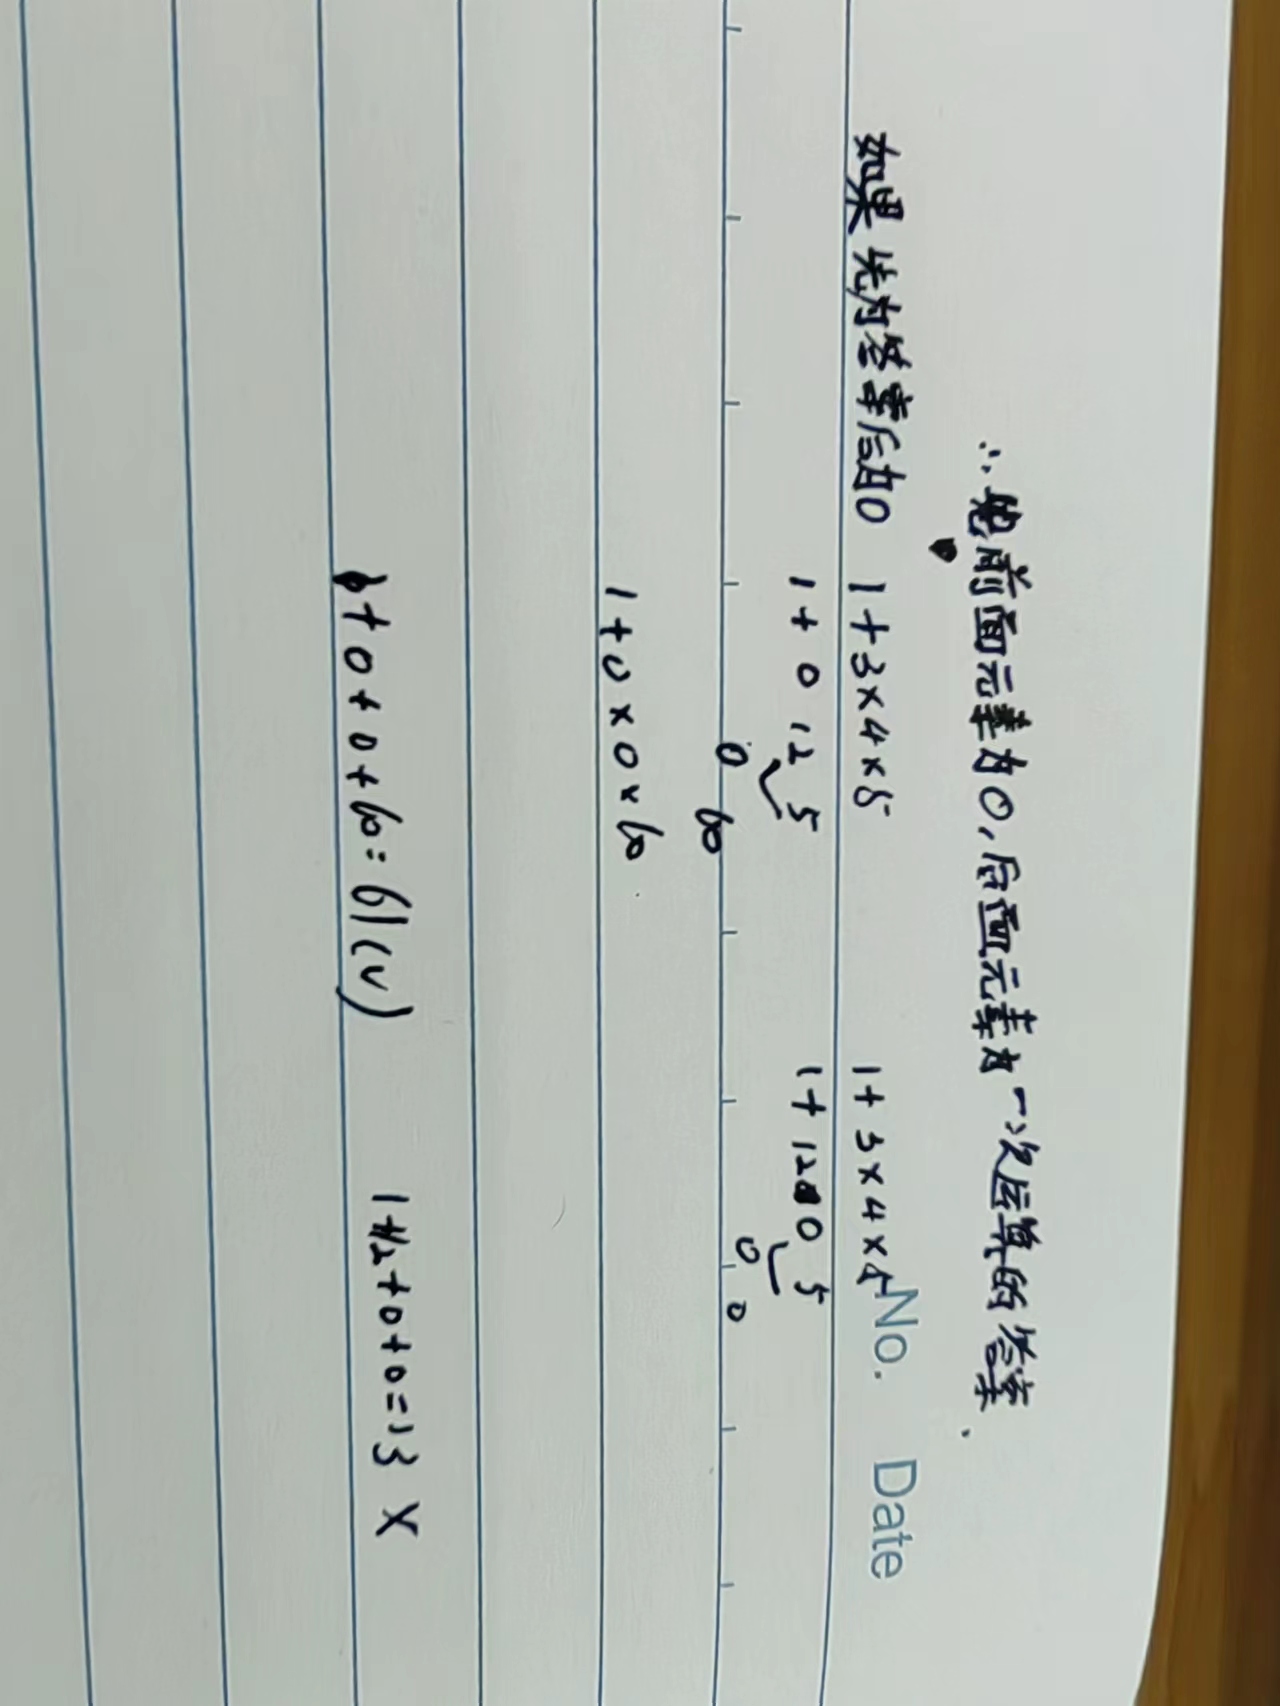 ∴ 前面元素为0,后面元素为一次运算的答案.
No. Date
如果先为答案后为0 1+3×4×5 1+3×4×5
1+0 12 5 1+12 0 5
0 60 0 0
1+0×0×60
1+0+0+60=61(√) 1+12+0+0=13 ×